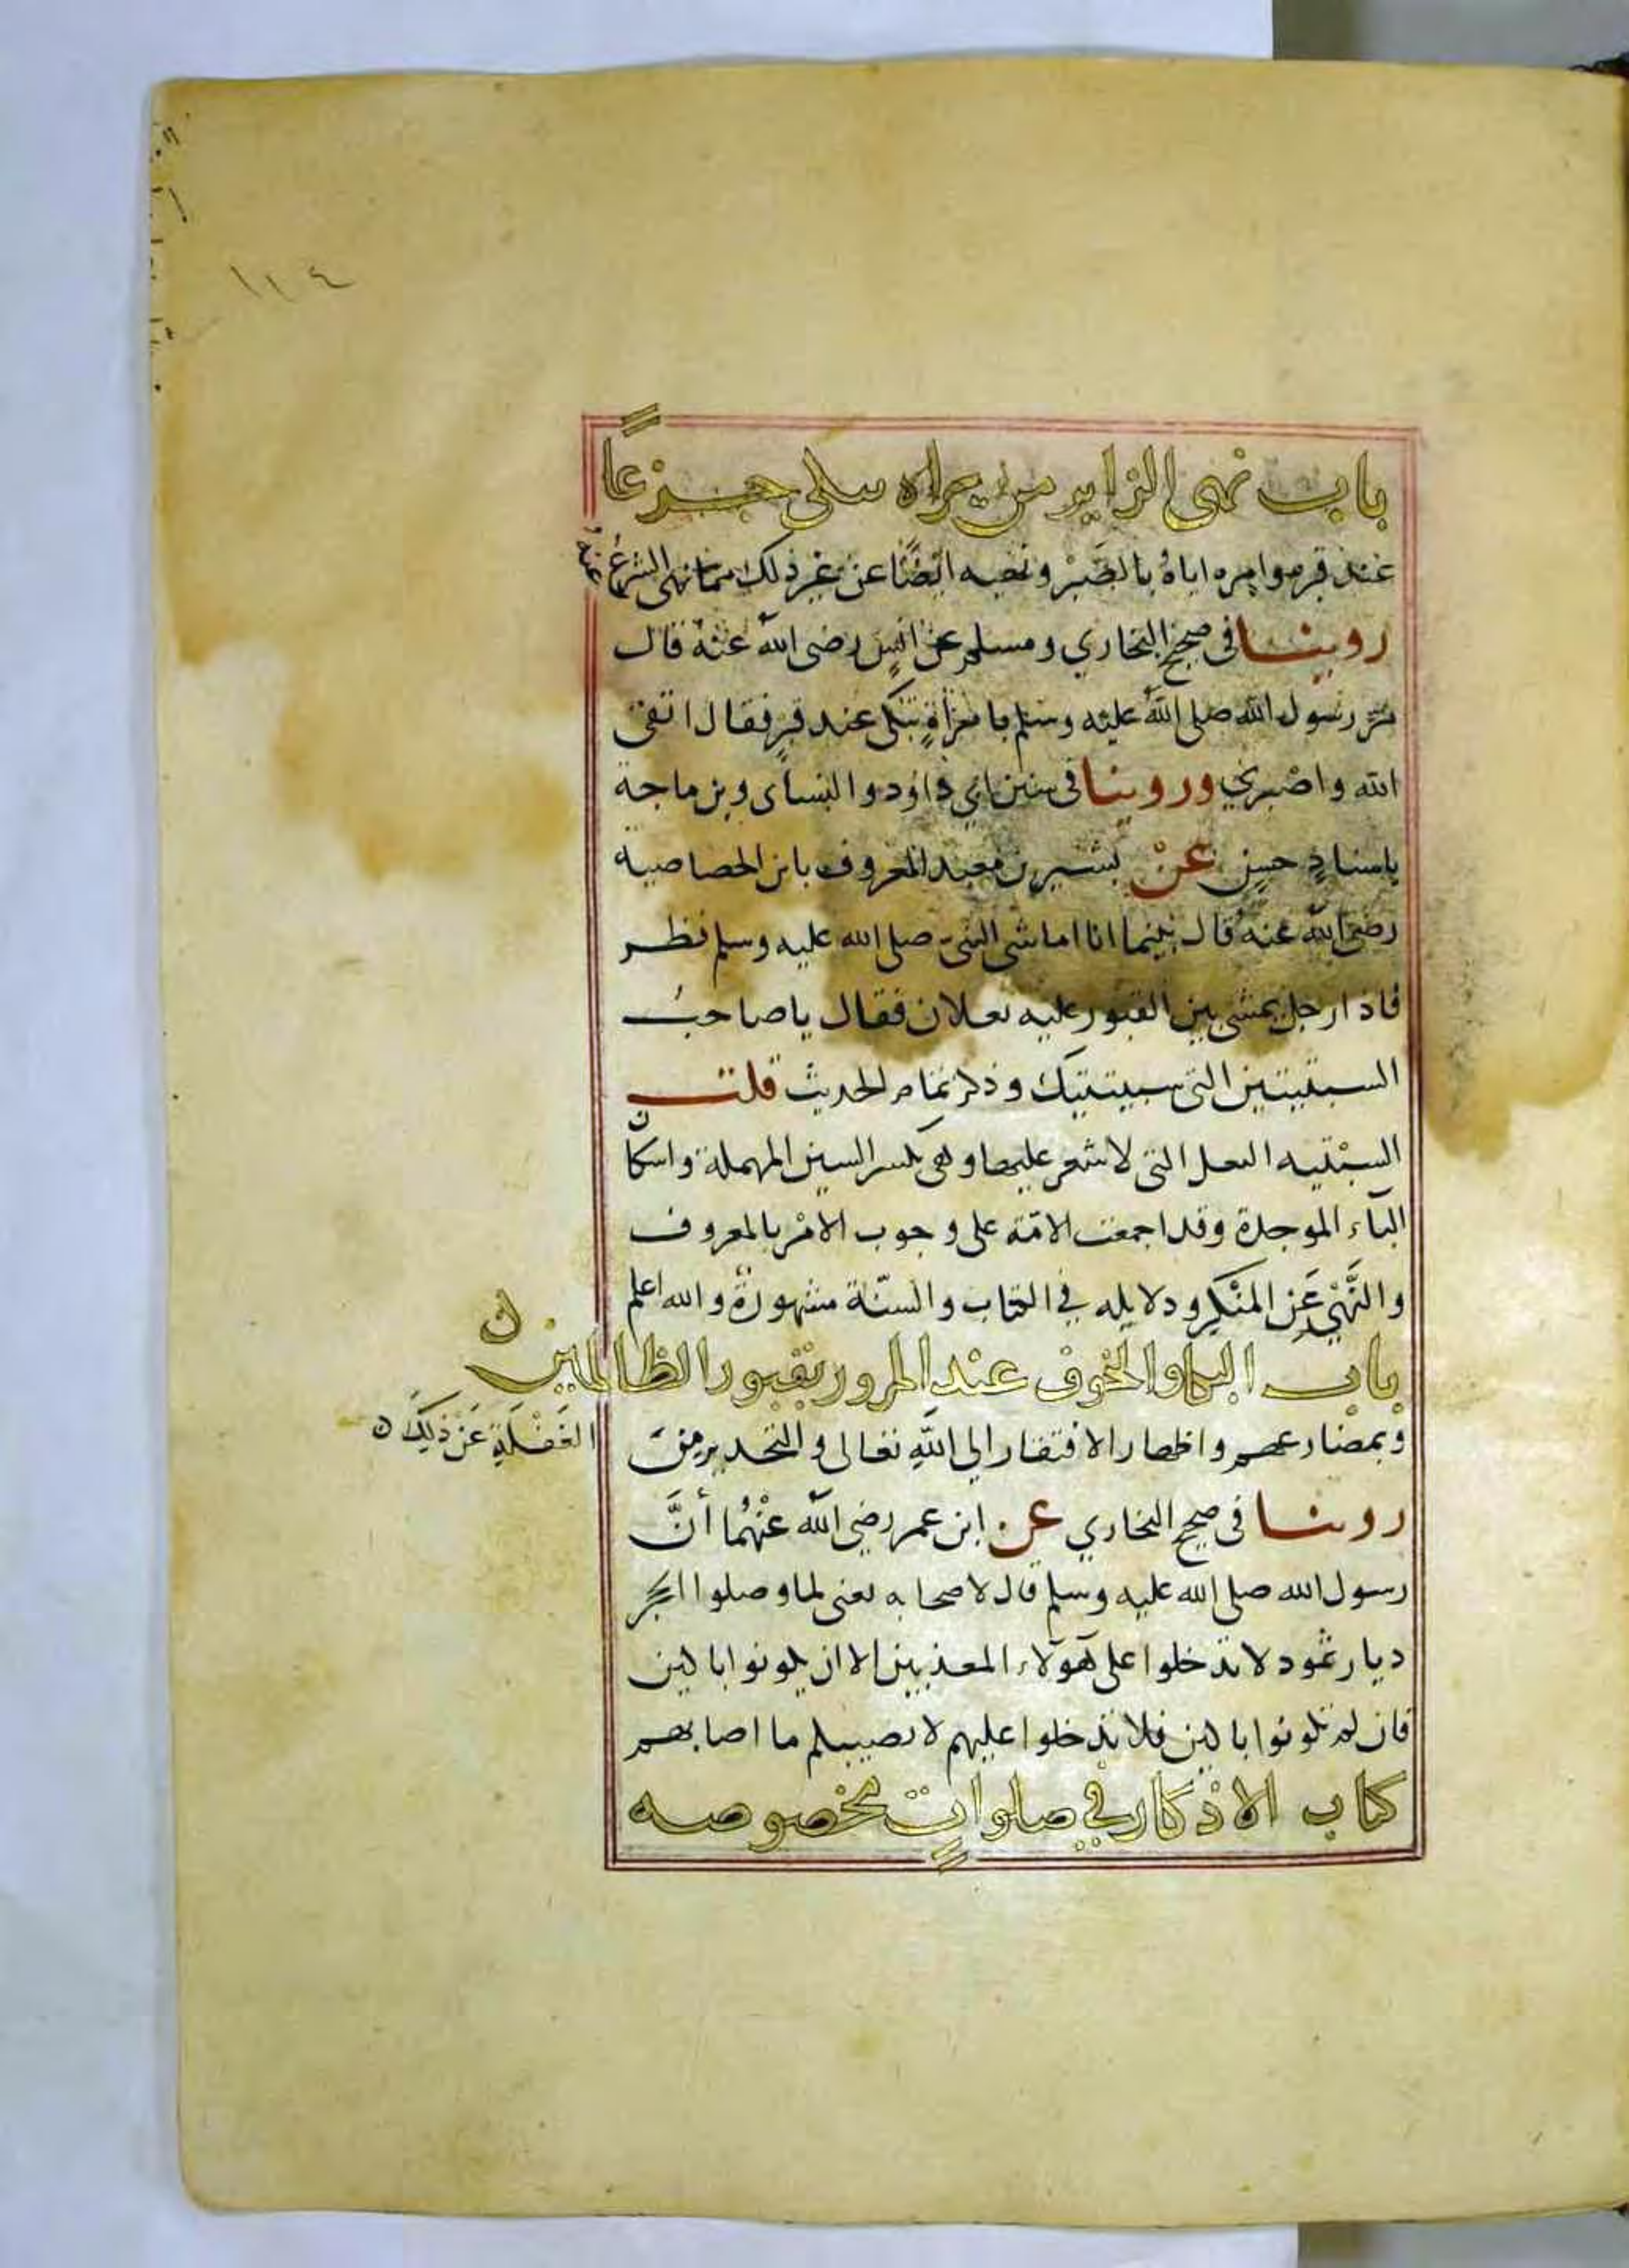 ١١٤
باب نهى الزاير من يراه يبكى جزعا
عند قبر وامره اياه بالصبر ونهيه ايضا عن غير ذلك مما نهى الشرع عنه
روينا فى صحيح البخاري ومسلم عن انس رضى الله عنه قال
مر رسول الله صلى الله عليه وسلم بامرأة تبكى عند قبر فقال اتقى
الله واصبري وروينا فى سنن ابي داود والنساى وبن ماجة
باسناد حسن عن بشير بن معبد المعروف بابن الخصاصية
رضى الله عنه قال بينما انا اماشى النبى صلى الله عليه وسلم نظر
فاذا رجل يمشى بين القبور عليه نعلان فقال يا صاحب
السبتيتين القى سبتيتيك وذكر تمام الحديث قلت
السبتيه النعل التى لا شعر عليها وهى بكسر السين المهملة واسكان
الباء الموحدة وقد اجمعت الامة على وجوب الامر بالمعروف
والنَّهْي عَنِ المنْكرِ ودلايله في الكتاب والسنّة مشهورة والله اعلم
باب البكا والخوف عند المرور بقبور الظالمين
وبمصارعهم واظهار الافتقار الى الله تعالى والتحذير من
الغَفْلَةِ عَنْ ذَلِكَ
روينا فى صحيح البخاري عن ابن عمر رضي الله عنْهُما أنَّ
رسول الله صلى الله عليه وسلم قال لاصحابه يعنى لما وصلوا الحجر
ديار ثمود لا تدخلوا على هؤلاء المعذبين الا ان تكونوا باكين
فان لم تكونوا باكين فلا تدخلوا عليهم لا يصيبكم ما اصابهم
كتاب الاذكار في صلواتٍ مخصوصه